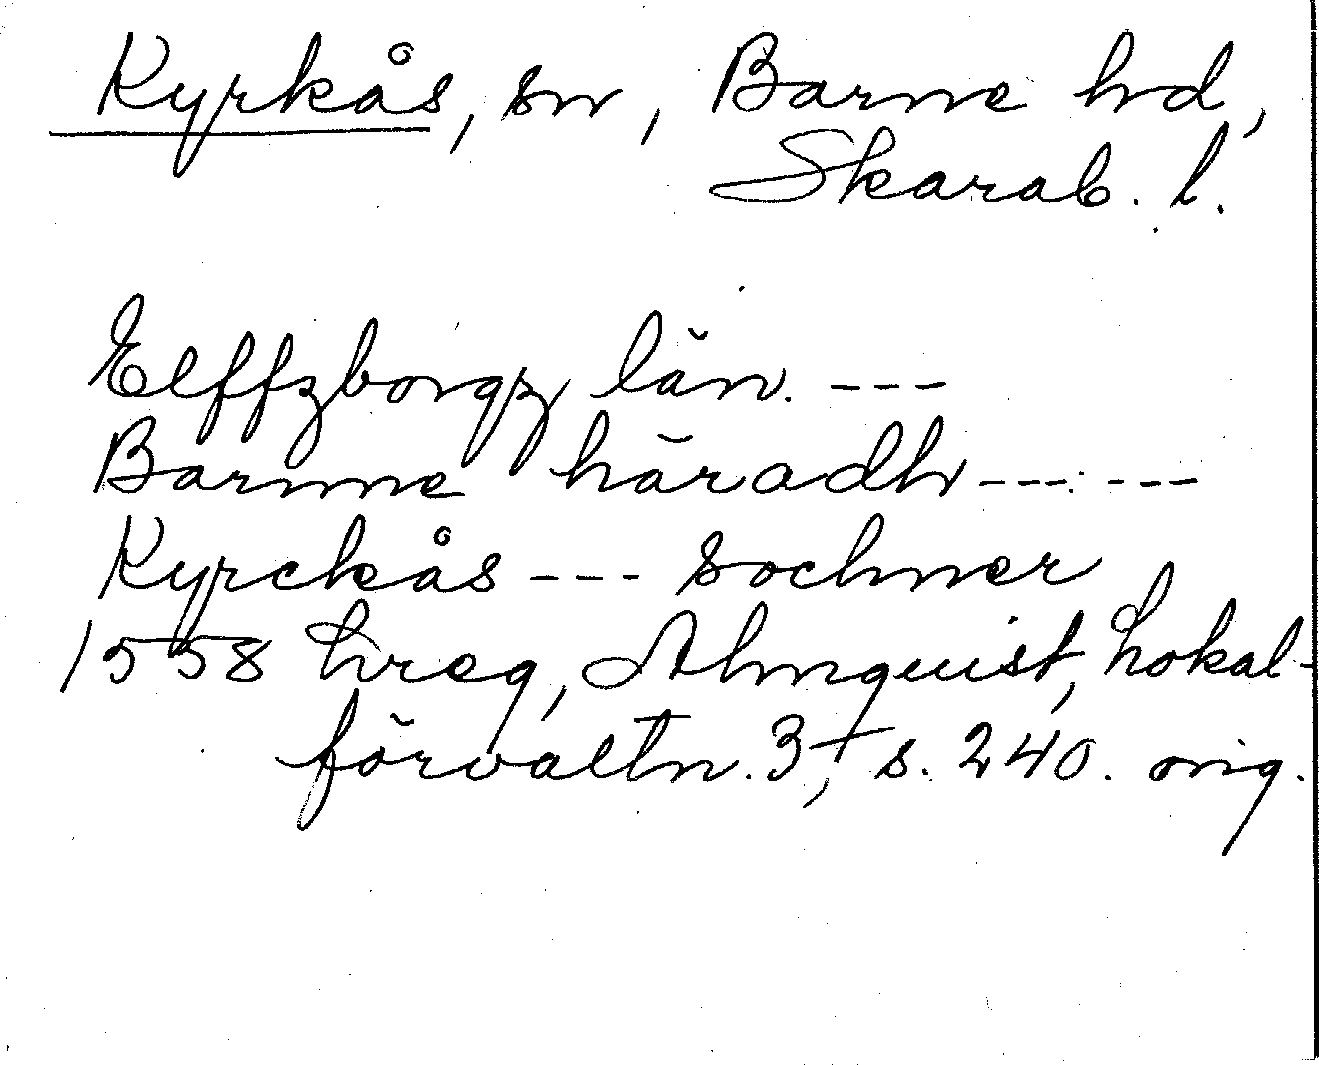 Kyrkås, sn, Barne hd,
Skarab. l.
Elffzborgz län. ---
Barnne häradh --- ---
Kyrckås --- sochner
1558 hreg, Almquist, Lokal-
förvaltn. 3, s. 240. orig.